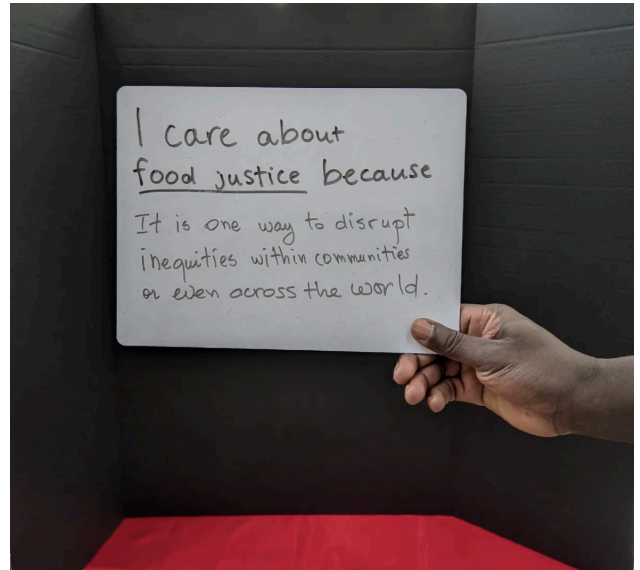 I care about
food justice because
It is one way to disrupt
inequities within communities
or even across the world.